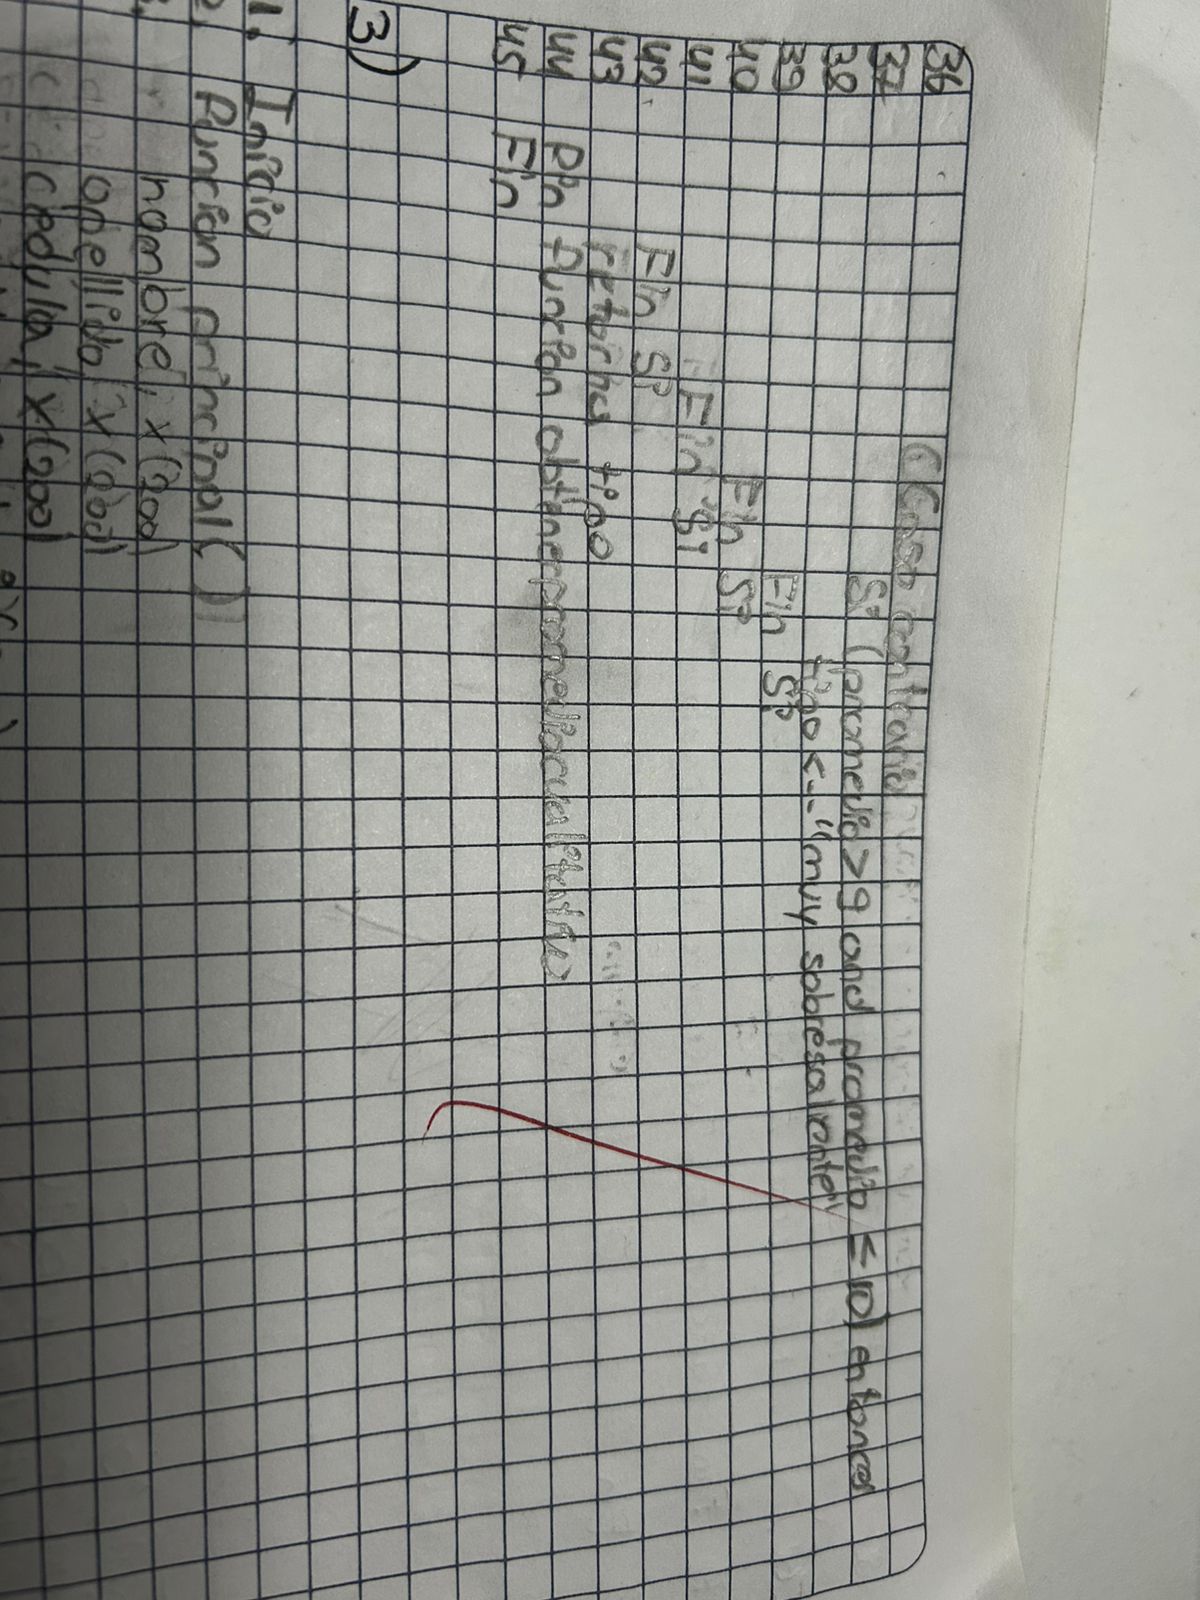 36 Caso contrario
37 Si (promedio > 9 and promedio ≤ 10) entonces
38 tipo <-- "muy sobresaliente"
39 Fin Si
40 Fin Si
41 Fin Si
42 Fin Si
43 retorna tipo
44 Fin funcion obtenerpromediocualitativo
45 Fin
3)
1. Inicio
2. Funcion principal()
nombre, x(200)
apellido, x(200)
cedula, x(200)